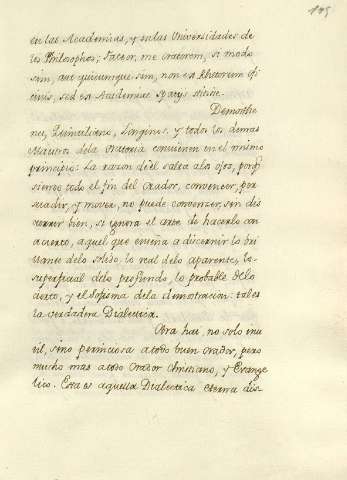 195
en las Academias, y en las Universidades de
los Philosophos; Fateor, me Oratorem, si modo
sim, aut quicumque sim, non ex Rhetorum ofi
cinis, sed ex Academiae spatijs
Demosthe
nes, Quintiliano, Longinos, y todos los demas
Maestros dela Oratoria convienen en el mismo
principio: La razon del salta alos ojos, porq̃
siendo todo el fin del Orador, convencer, per
suadir, y mover, no puede convencer, sin dis
correr bien, si ignora el arte de hacerlo con
acierto, aquel que enseña a discernir lo bri
llante delo solido, lo real delo aparente, lo
superficial delo profundo, lo probable delo
cierto, y el sofisma dela demostracion: tal es
la verdadera Dialectica.
Otra hai, no solo inu
til, sino perniciosa a todo buen Orador, pero
mucho mas a todo Orador Christiano, y Evange
lico. Esta es aquella Dialectica eterna dis-